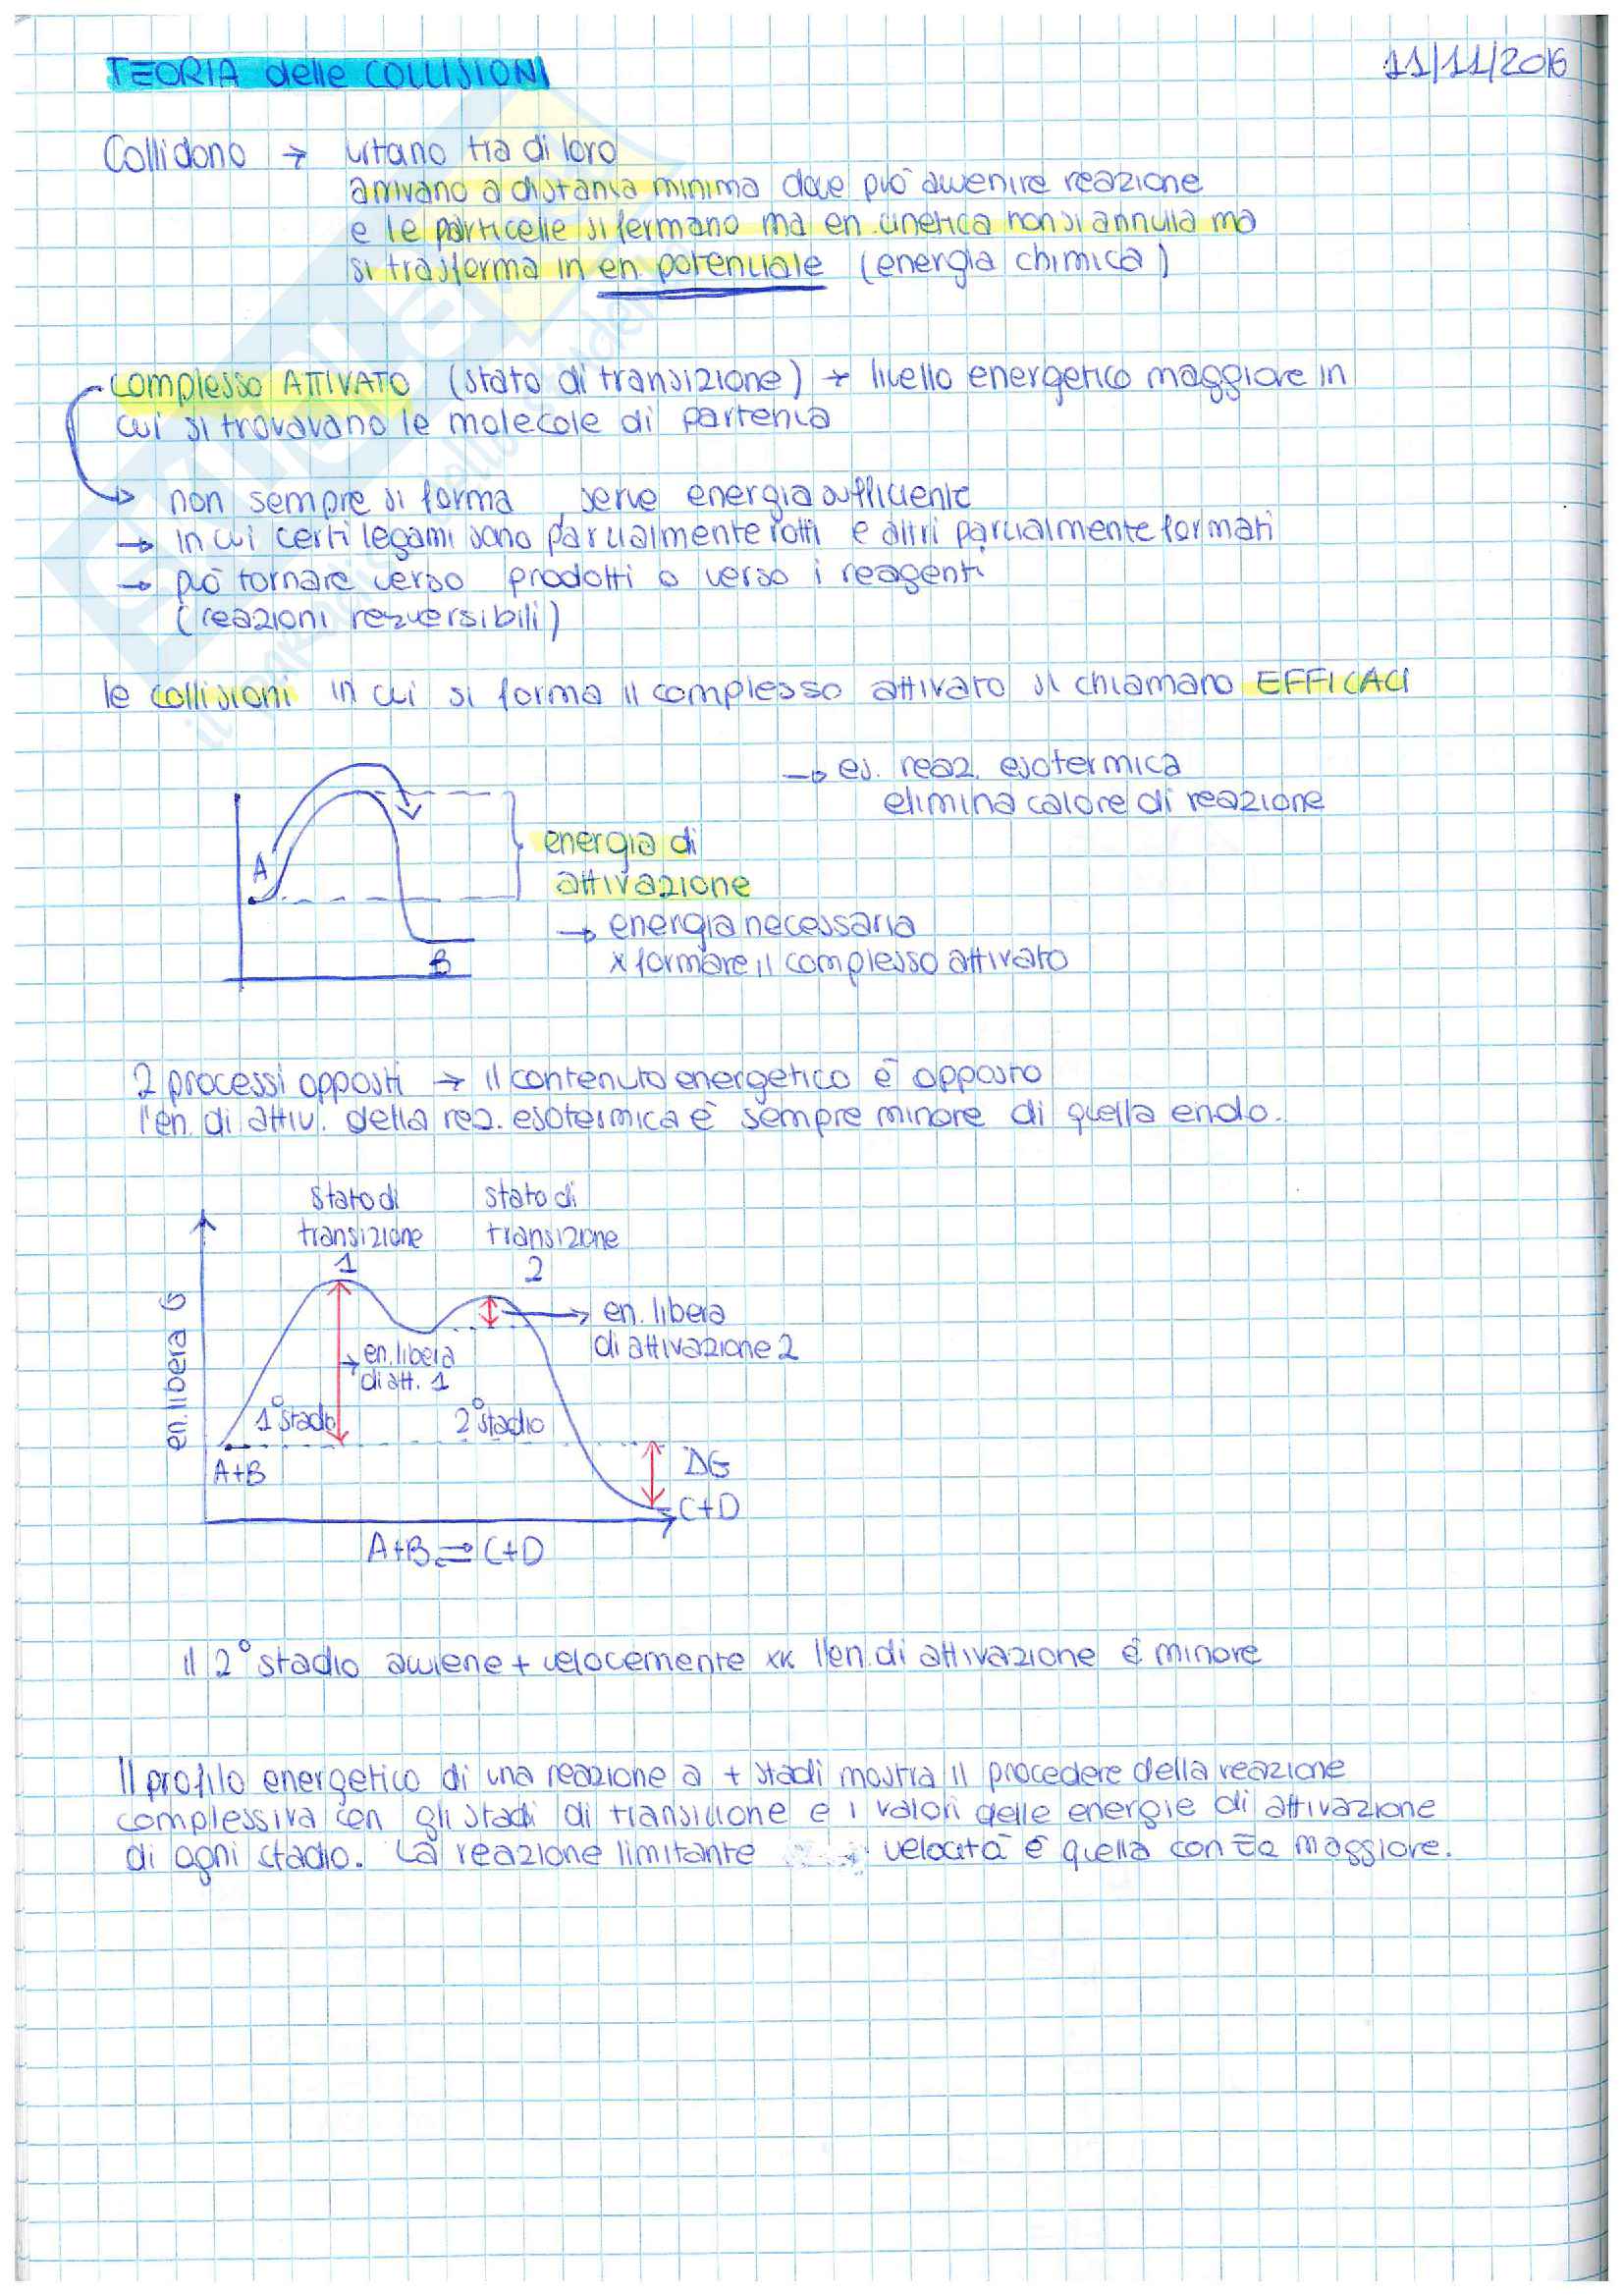 TEORIA delle COLLISIONI
11/11/2016
Collidono → urtano tra di loro
arrivano a distanza minima dove può avvenire reazione
e le particelle si fermano ma en. cinetica non si annulla ma
si trasforma in en. potenziale (energia chimica)
complesso ATTIVATO (stato di transizione) → livello energetico maggiore in
cui si trovavano le molecole di partenza
→ non sempre si forma, serve energia sufficiente
→ in cui certi legami sono parzialmente rotti e altri parzialmente formati
→ può tornare verso prodotti o verso i reagenti
(reazioni reversibili)
le collisioni in cui si forma il complesso attivato si chiamano EFFICACI
→ es. reaz. esotermica
elimina calore di reazione
A
energia di
attivazione
→ energia necessaria
x formare il complesso attivato
B
2 processi opposti → il contenuto energetico è opposto
l'en. di attiv. della rea. esotermica è sempre minore di quella endo.
stato di
transizione
1
stato di
transizione
2
en. libera G
→ en. libera
di attivazione 2
→ en. libera
di att. 1
1° stadio
2° stadio
A+B
ΔG
C+D
A+B ⇌ C+D
il 2° stadio avviene + velocemente xk l'en. di attivazione è minore
Il profilo energetico di una reazione a + stadi mostra il procedere della reazione
complessiva con gli stadi di transizione e i valori delle energie di attivazione
di ogni stadio. La reazione limitante velocità è quella con Ea maggiore.